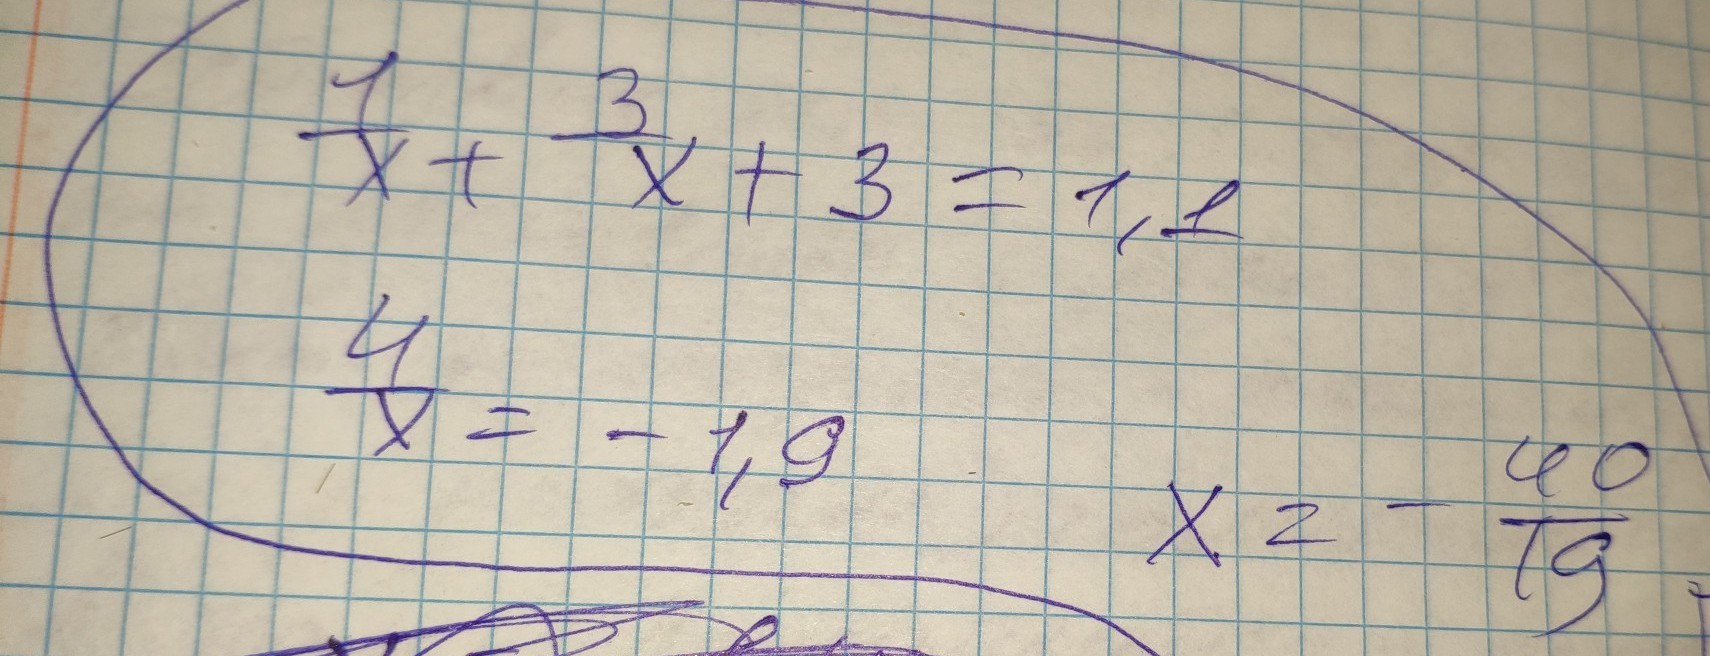 1/x + 3/x + 3 = 1,1
4/x = - 1,9
x = - 40/19